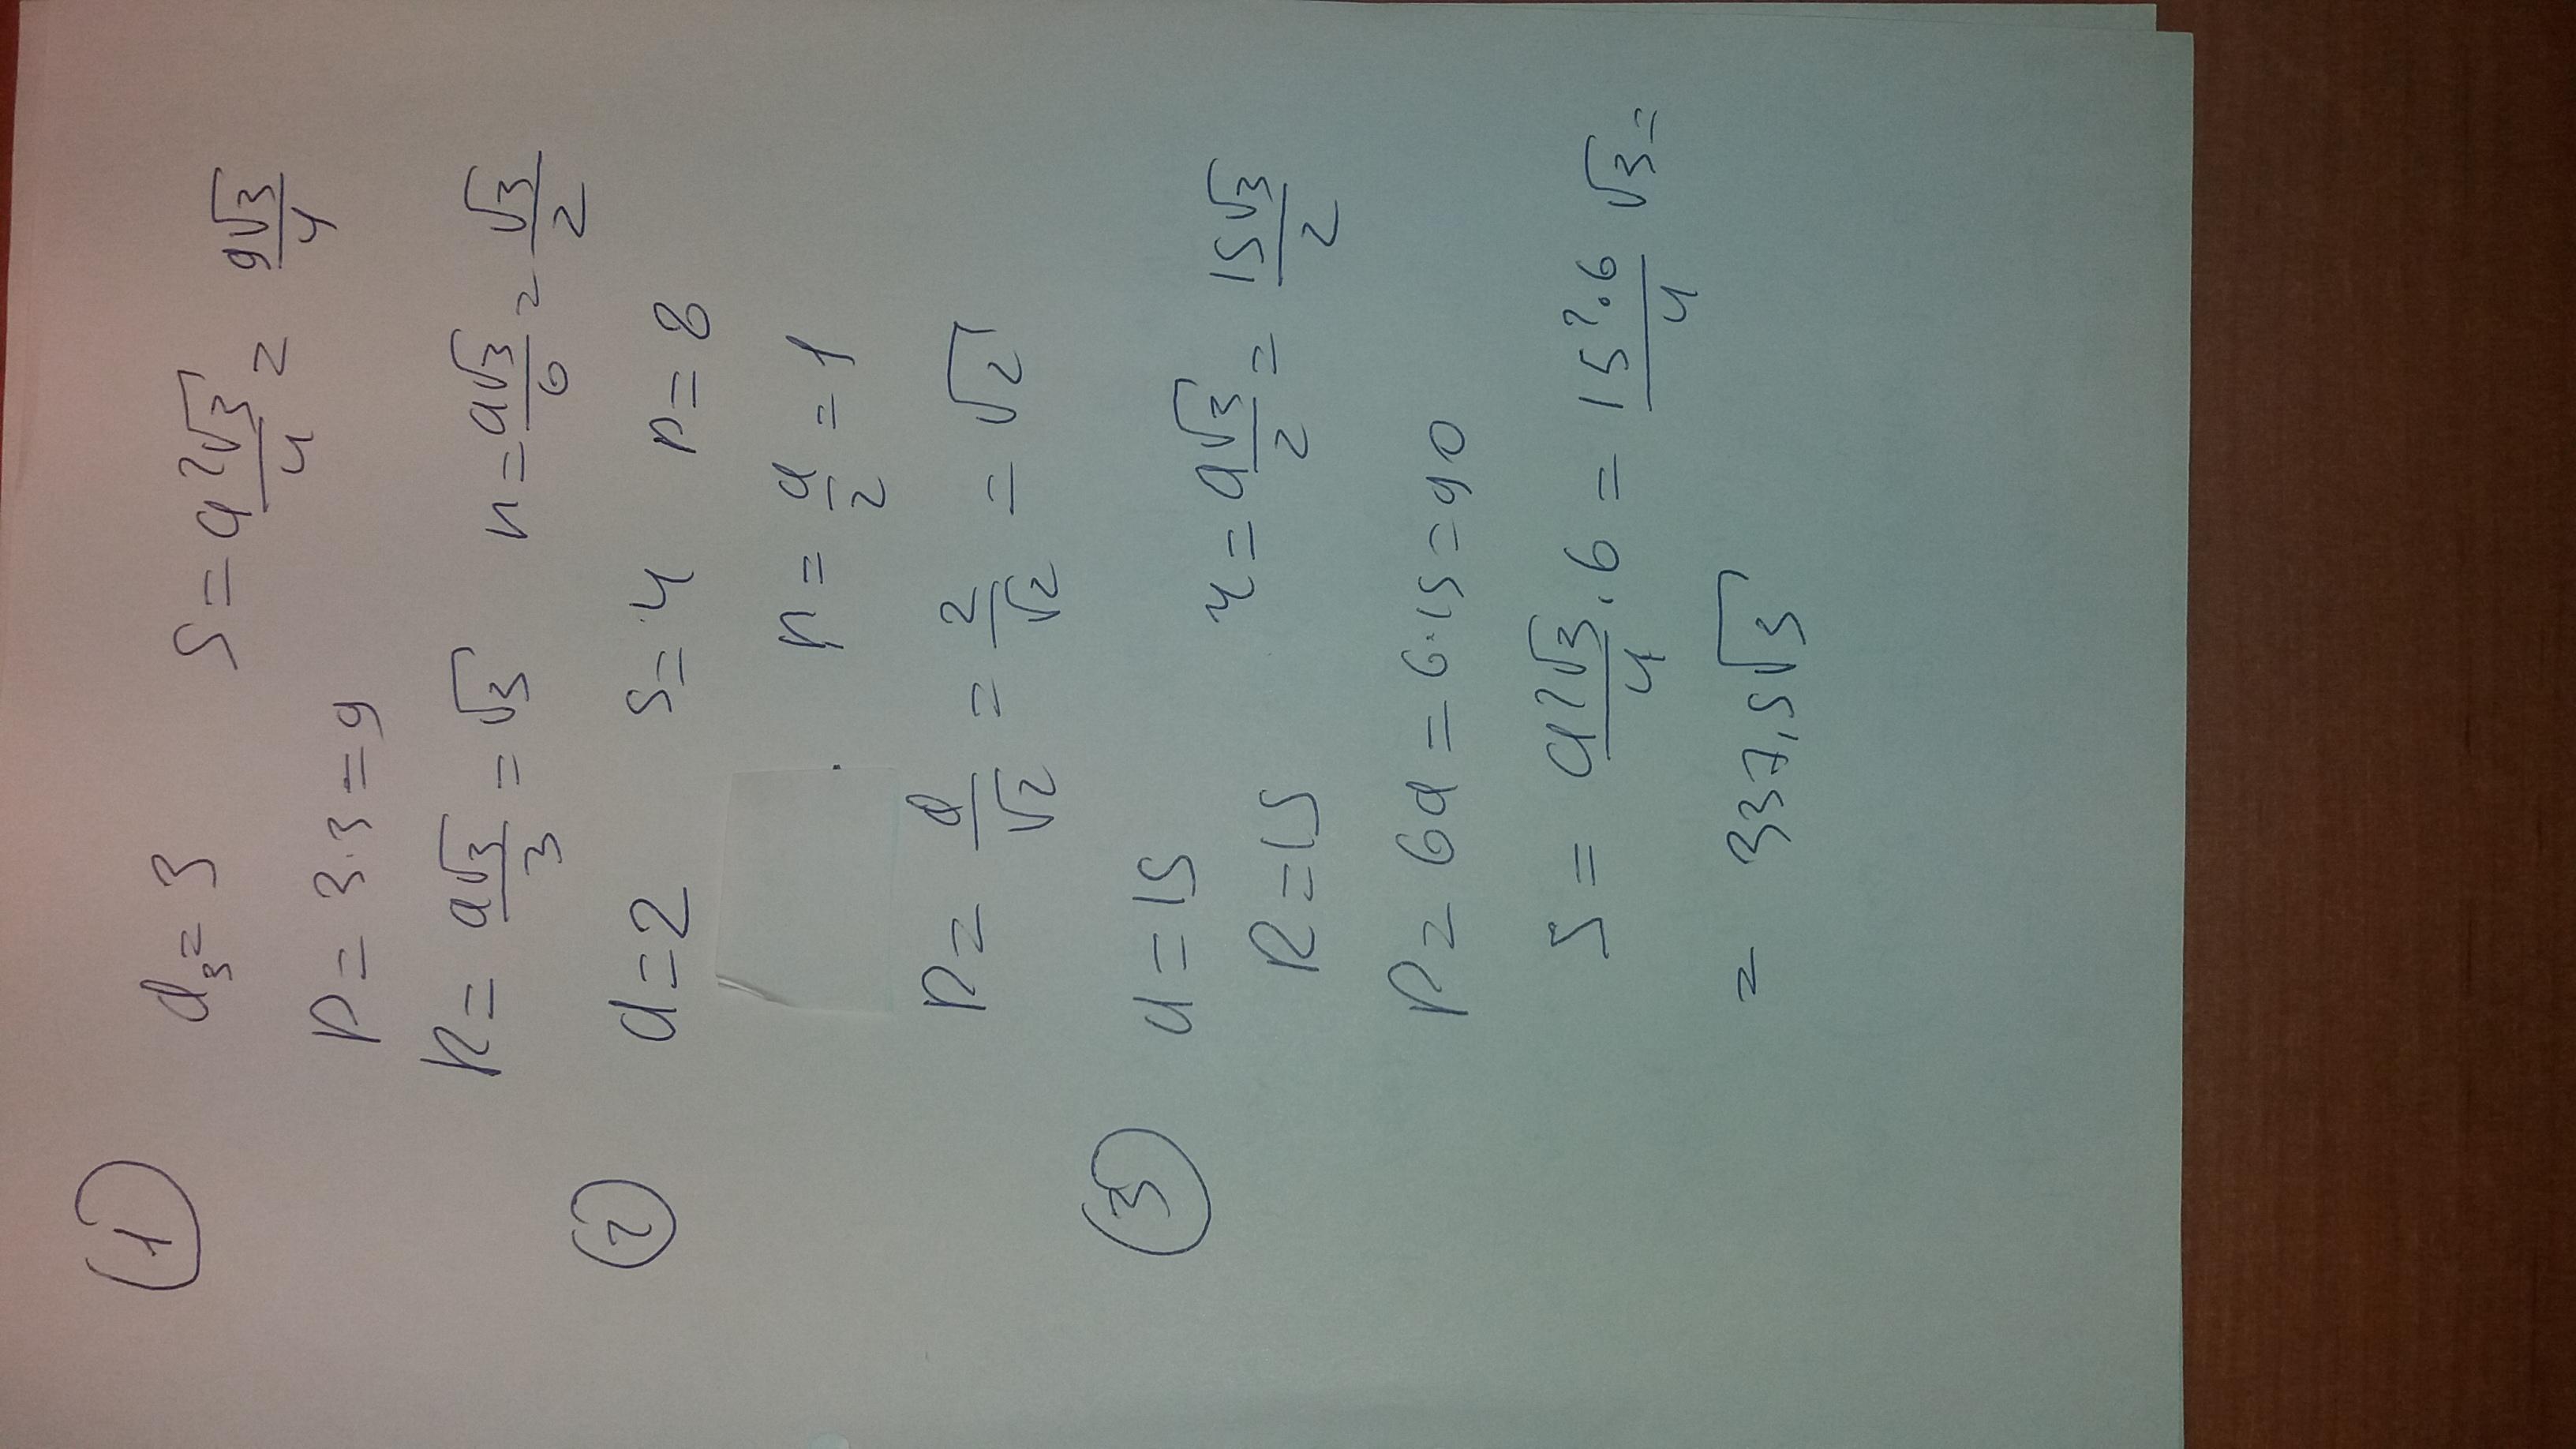 ① a₃ = 3 S = a²√3/4 = 9√3/4
P = 3·3 = 9
R = a√3/3 = √3 r = a√3/6 = √3/2
② a = 2 S = 4 P = 8
r = a/2 = 1
R = a/√2 = 2/√2 = √2
③ a = 15 r = a√3/2 = 15√3/2
R = 15
P = 6a = 6·15 = 90
S = a²√3/4 · 6 = 15²·6/4 √3 =
= 337,5√3